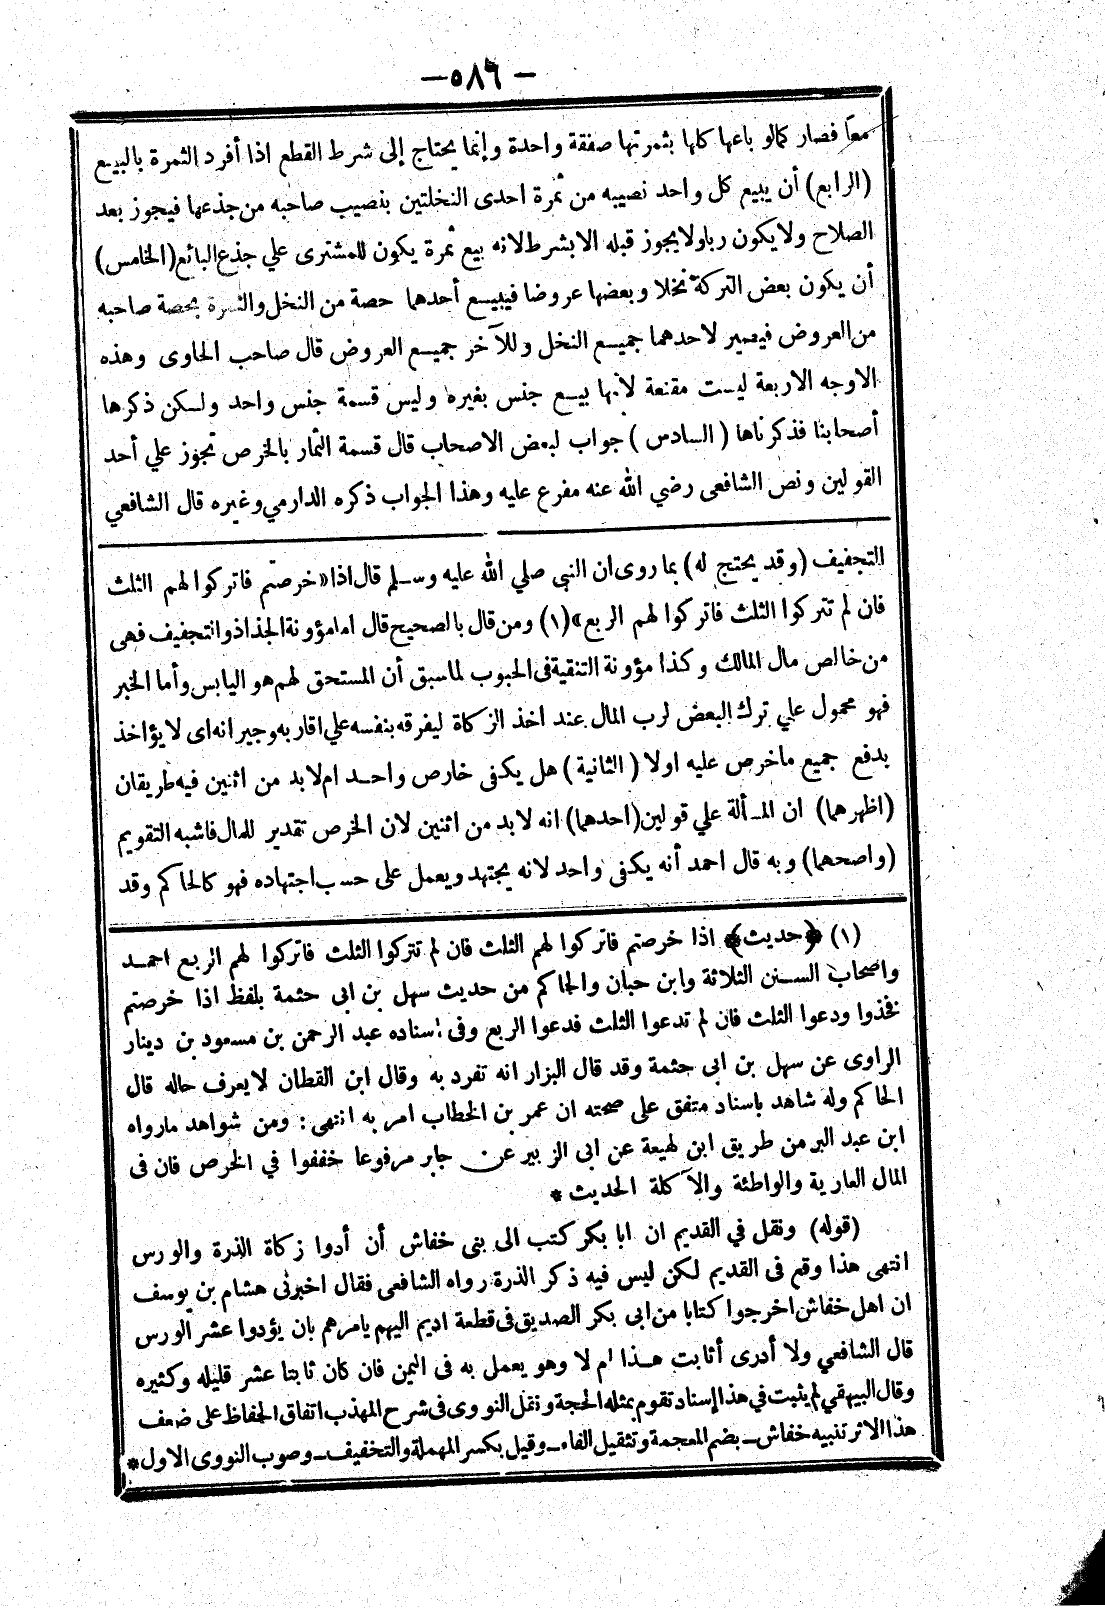 — ٥٨٦ —
معا فصار كما لو باعها كلها بثمرتها صفقة واحدة وإنما يحتاج إلى شرط القطع اذا أفرد الثمرة بالبيع
(الرابع) أن يبيع كل واحد نصيبه من ثمرة احدى النخلتين بنصيب صاحبه من جذعها فيجوز بعد
الصلاح ولا يكون ربا ولا يجوز قبله الا بشرط لانه بيع ثمرة يكون للمشترى علي جذع البائع (الخامس)
أن يكون بعض التركة نخلا وبعضها عروضا فيبيع أحدهما حصة من النخل والثمرة بحصة صاحبه
من العروض فيصير لاحدهما جميع النخل وللآخر جميع العروض قال صاحب الحاوى وهذه
الاوجه الاربعة ليست مقنعة لأنها بيع جنس بغيره وليس قسمة جنس واحد ولكن ذكرها
أصحابنا فذكرناها (السادس) جواب لبعض الاصحاب قال قسمة الثمار بالخرص تجوز علي أحد
القولين ونص الشافعى رضي الله عنه مفرع عليه وهذا الجواب ذكره الدارمي وغيره قال الشافعي
التجفيف (وقد يحتج له) بما روى ان النبي صلي الله عليه وسلم قال اذا «خرصتم فاتركوا لهم الثلث
فان لم تتركوا الثلث فاتركوا لهم الربع» (١) ومن قال بالصحيح قال اما مؤونة الجذاذ والتجفيف فهى
من خالص مال المالك وكذا مؤونة التنقية فى الحبوب لما سبق أن المستحق لهم هو اليابس وأما الخبر
فهو محمول علي ترك البعض لرب المال عند اخذ الزكاة ليفرقه بنفسه علي اقاربه وجيرانه اى لا يؤاخذ
بدفع جميع ما خرص عليه اولا (الثانية) هل يكفى خارص واحد ام لا بد من اثنين فيه طريقان
(اظهرهما) ان المسألة علي قولين (احدهما) انه لا بد من اثنين لان الخرص تقدير للمال فاشبه التقويم
(واصحهما) وبه قال احمد أنه يكفى واحد لانه يجتهد ويعمل على حسب اجتهاده فهو كالحاكم وقد
(١) ﴿حديث﴾ اذا خرصتم فاتركوا لهم الثلث فان لم تتركوا الثلث فاتركوا لهم الربع احمد
واصحاب السنن الثلاثة وابن حبان والحاكم من حديث سهل بن ابى حثمة بلفظ اذا خرصتم
فخذوا ودعوا الثلث فان لم تدعوا الثلث فدعوا الربع وفى اسناده عبد الرحمن بن مسعود بن دينار
الراوى عن سهل بن ابى حثمة وقد قال البزار انه تفرد به وقال ابن القطان لا يعرف حاله قال
الحاكم وله شاهد باسناد متفق على صحته ان عمر بن الخطاب امر به انتهى: ومن شواهد ما رواه
ابن عبد البر من طريق ابن لهيعة عن ابى الزبير عن جابر مرفوعا خففوا في الخرص فان فى
المال العارية والواطئة والآكلة الحديث *
(قوله) ونقل في القديم ان ابا بكر كتب الى بنى خفاش أن أدوا زكاة الذرة والورس
انتهى هذا وقع فى القديم لكن ليس فيه ذكر الذرة رواه الشافعى فقال اخبرنى هشام بن يوسف
ان اهل خفاش اخرجوا كتابا من ابى بكر الصديق فى قطعة اديم اليهم يامرهم بان يؤدوا عشر الورس
قال الشافعي ولا أدرى أثابت هذا ام لا وهو يعمل به فى اليمن فان كان ثابتا عشر قليله وكثيره
وقال البيهقي لم يثبت في هذا إسناد تقوم بمثله الحجة ونقل النووى فى شرح المهذب اتفاق الحفاظ على ضعف
هذا الاثر تنبيه خفاش ـ بضم المعجمة وتثقيل الفاء ـ وقيل بكسر المهملة والتخفيف ـ وصوب النووى الاول *